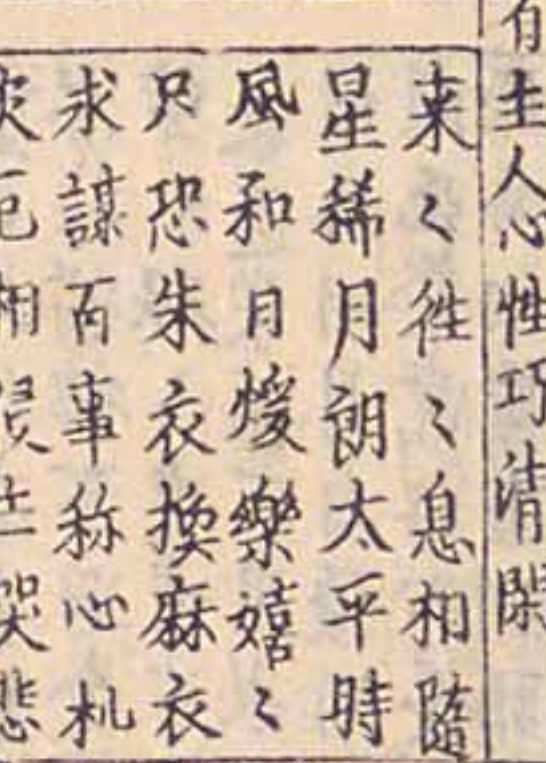 主人心性巧清閑
来〻徃〻息相隨
星稀月朗太平時
風和日煖樂嬉〻
只恐朱衣換麻衣
求謀百事称心札
厄相侵哭悲